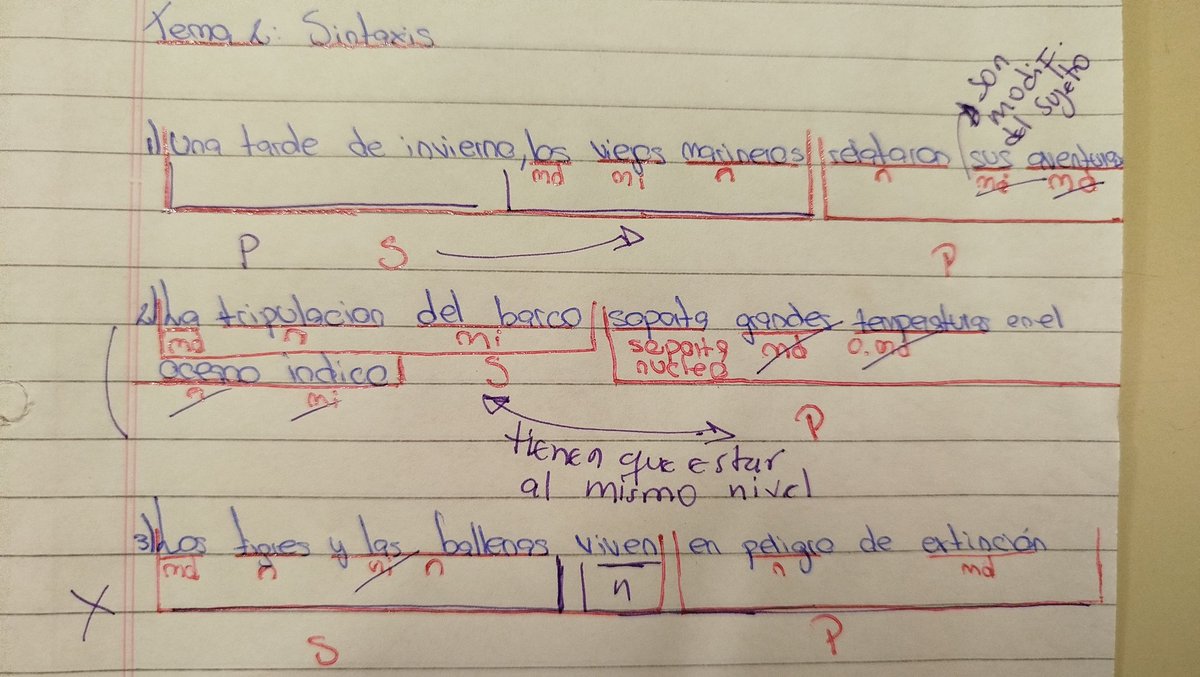 Tema 1: Sintaxis
Son
modif.
del sujeto
1) Una tarde de invierno, los viejos marineros relataron sus aventuras
md mi n n mi md
P S P
2) La tripulacion del barco soporta grandes temperaturas en el
md n mi soporta md o.md
nucleo
oceano indico S
n mi P
tienen que estar
al mismo nivel
3) Los tigres y las ballenas viven en peligro de extinción
md n mi n n n md
X
S P